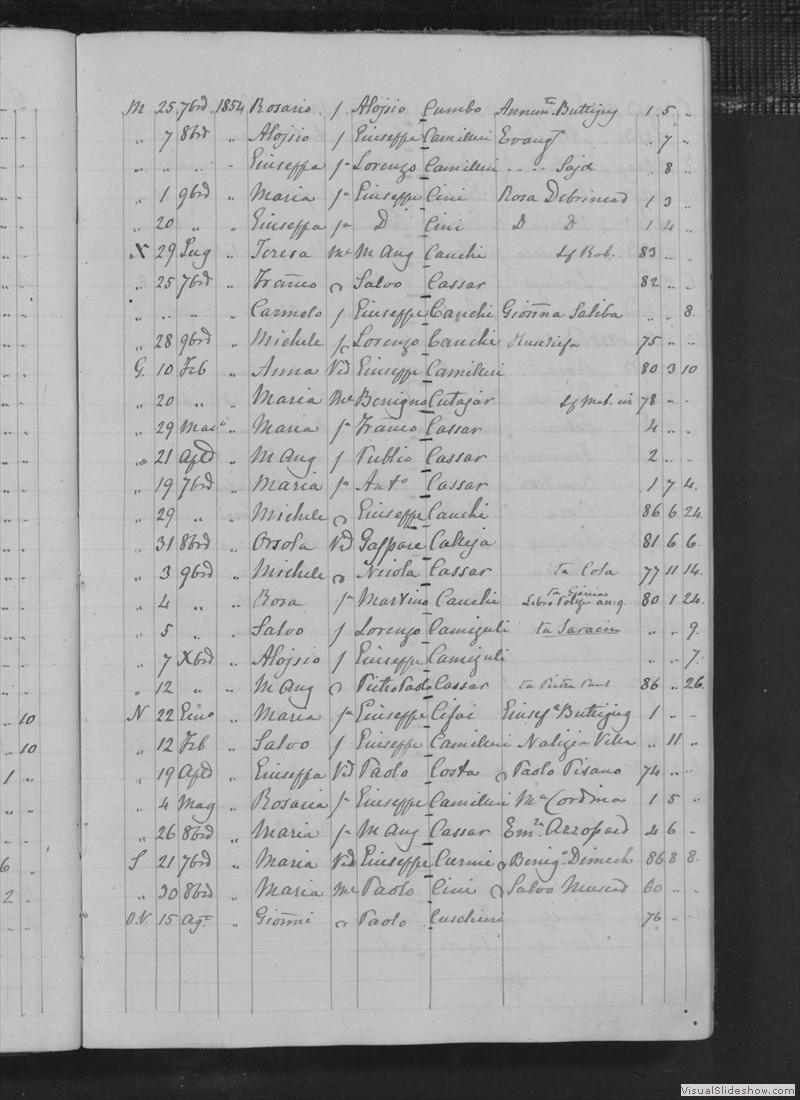 M 25 7bre 1854 Rosario f Alojsio Cumbo Annun.ta Buttigieg 1 5 "
" 7 8bre " Alojsio f Giuseppe Camilleri Evang.ta " 7 "
" " " " Giuseppa fa Lorenzo Camilleri .... Sajd " 8 "
" 1 9bre " Maria fa Giuseppe Cini Rosa Debrincat 1 3 "
" 20 " " Giuseppa fa D Cini D D 1 4 "
X 29 Lug " Teresa Me M Ang Cauchi 83 "
" 25 7bre " Franco Salvo Cassar 82 " "
" " " " Carmelo f Giuseppe Cauchi Gioṁna Saliba " " 8.
" 28 9bre " Michele f Lorenzo Cauchi 75 " "
G. 10 Feb " Anna Vid Giuseppe Camilleri 80 3 10
" 20 " " Maria Me Benigno Cutajar 78 " "
" 29 Marzo " Maria fa Franco Cassar 4 " "
" 21 Aple " M Ang f Publio Cassar 2 " "
" 19 7bre " Maria fa Anto Cassar 1 7 4.
" 29 " " Michele Giuseppe Cauchi 86 6 24.
" 31 8bre " Orsola Vid Gaspare Calleja 81 6 6
" 3 9bre " Michele Nicola Cassar ta Cola 77 11 14.
" 4 " " Rosa fa Martino Cauchi 80 1 24.
" 5 " " Salvo f Lorenzo Camizuli ta Saracin " " 9.
" 7 Xbre " Alojsio f Giuseppe Camizuli " " 7.
" 12 " " M Ang Pietro Paolo Cassar ta Pietru Paul 86 " 26
10 N 22 Eno " Maria fa Giuseppe Cefai Giusepa Buttigieg 1 " "
10 " 12 Feb " Salvo f Giuseppe Camilleri Natizia Vella " 11 "
1 " 19 Aple " Giuseppa Vid Paolo Costa Paolo Pisano 74 " "
" 4 Mag " Rosaria fa Giuseppe Camilleri Ma Cordina 1 5 "
" 26 8bre " Maria fa M Ang Cassar Em.la Azzopard 4 6 "
6 S 21 7bre " Maria Vid Giuseppe Curmi Benig.o Dimech 86 8 8.
2 " 30 8bre " Maria Me Paolo Cini Salvo Muscat 60 " "
O.N. 15 Ago " Gioṅni Paolo Cuschieri 76 " "
VisualSlideshow.com